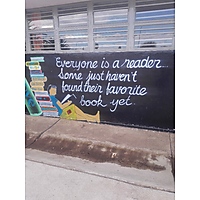 Everyone is a reader...
Some just haven't
found their favorite
book yet.